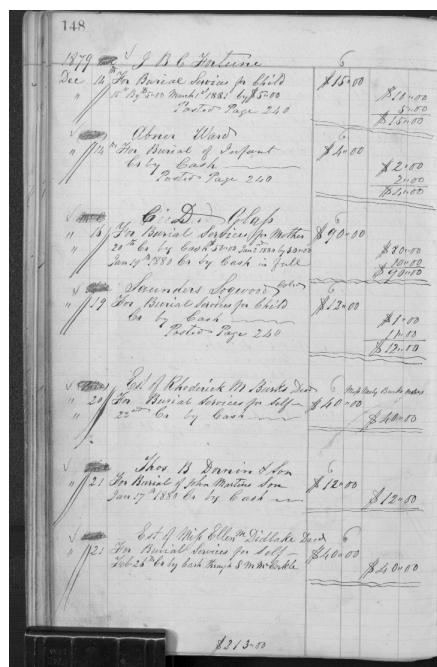 148
1879 J B C Fortune 6
Dec 14th For Burial Services for Child $15"00
15th By $5.00 March 1st 1881 by $5"00 $10"00
Posted Page 240 5"00
$15"00
Abner Ward 6
" 14th For Burial of Infant $4"00
Cr by Cash $2"00
Posted Page 240 2"00
$4"00
C. D. Glass 6
" 18 For Burial Services for Mother $90"00
20th Cr by Cash Jany 1880 by $80"00
Jany 19th 1880 Cr by Cash in full 10"00
$90"00
Saunders Logwood Cold 6
" 19 For Burial Services for Child $12"00
Cr by Cash $1"00
Posted Page 240 11"00
$12"00
Est of Rhoderick M Burks Decd 6 Miss Burks
" 20 For Burial Services for Self $40"00
" 22nd Cr by Cash $40"00
Thos. B Dornin & Son 6
" 21 For Burial of John Martins Son $12"00
Jany 17th 1880 Cr by Cash $12"00
Est of Miss Ellen Didlake Decd 6
" 21 For Burial Services for Self $40"00
Feb 26th Cr by Cash through S M McCorkle $40"00
$213"00